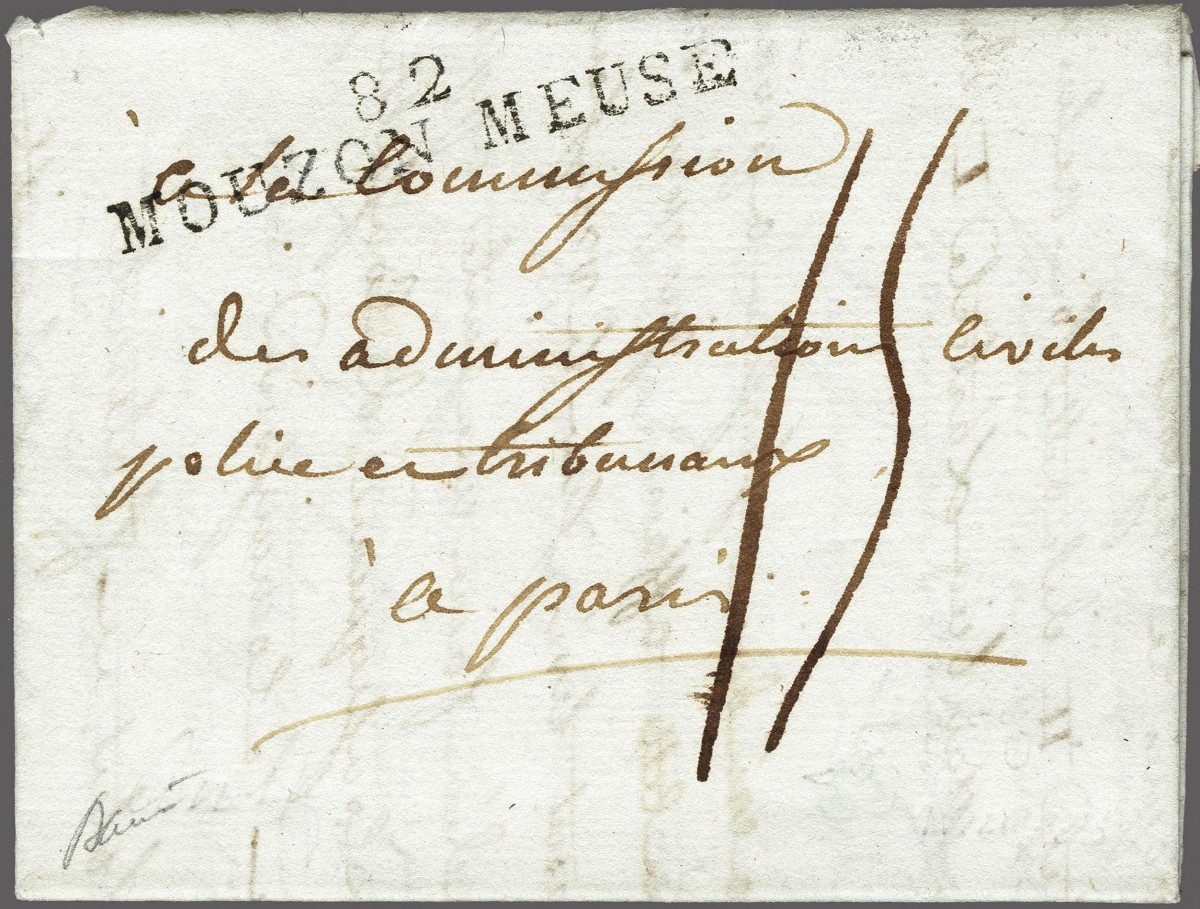 82
MOUZON MEUSE
à la Commission
des administrations civiles
police et tribunaux
à paris
15